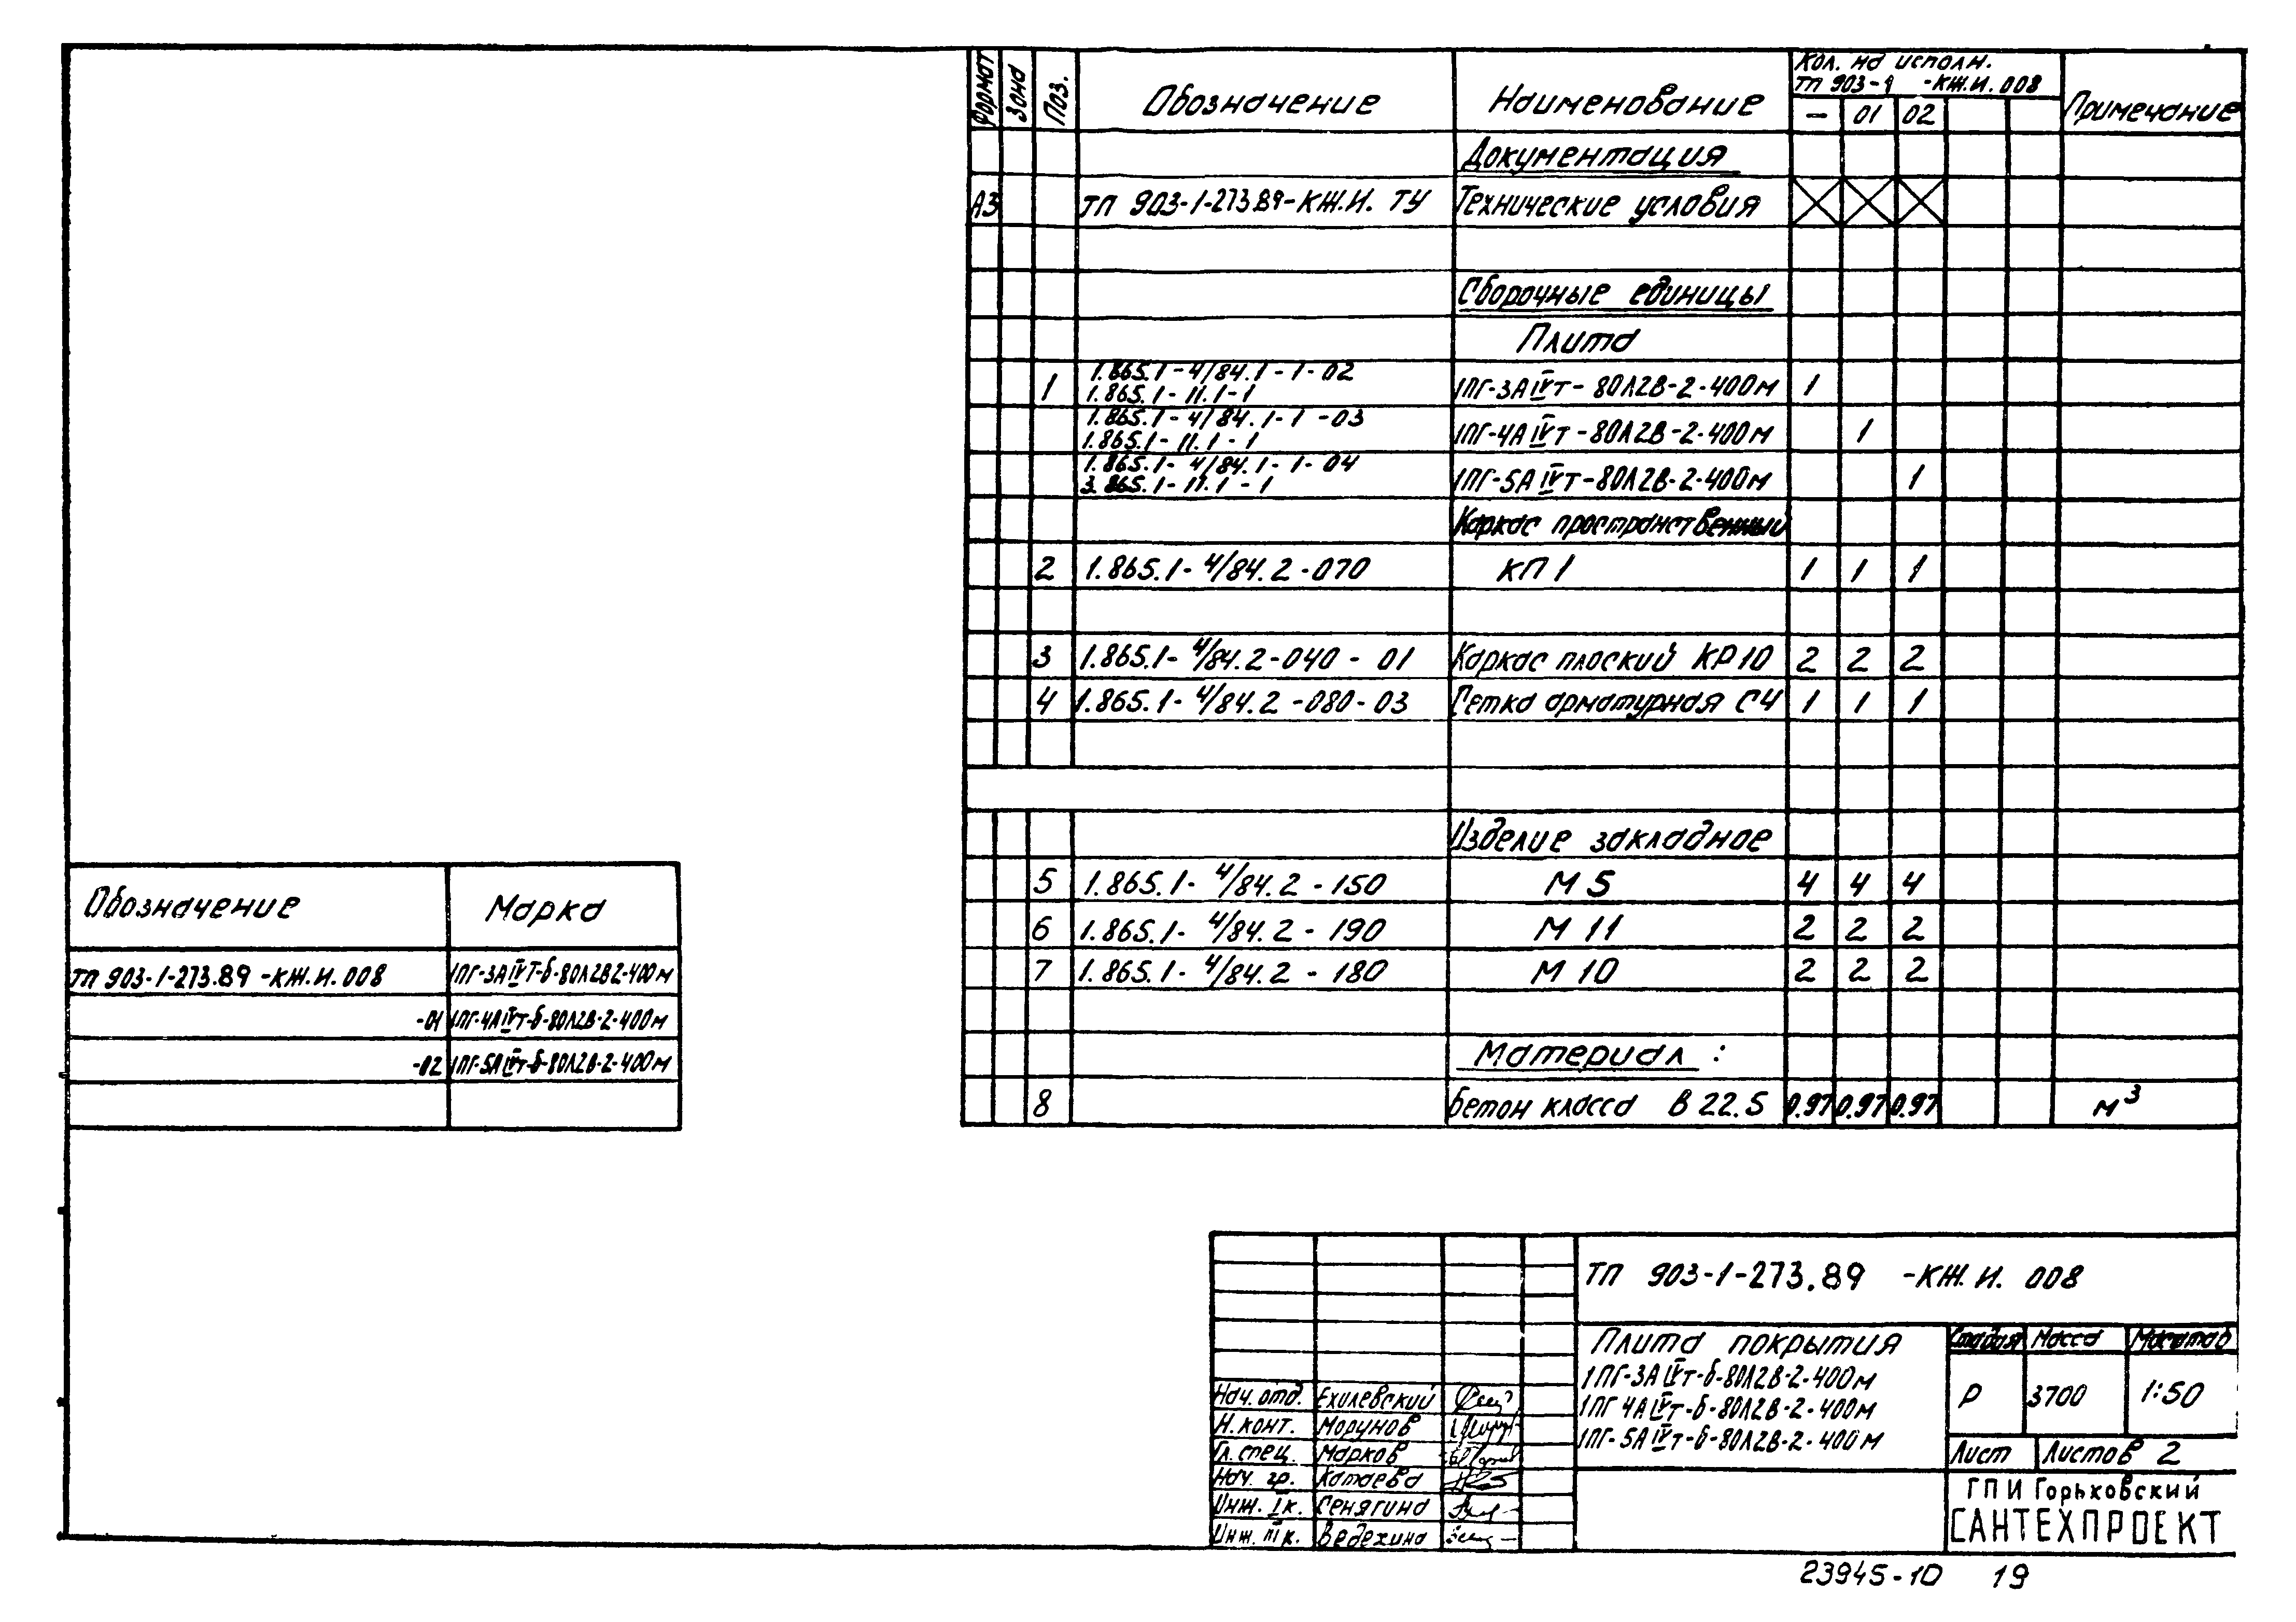 Формат Зона Поз. Обозначение Наименование Кол. на исполн. Примечание
ТП 903-1 -КЖ.И. 008
— 01 02
Документация
А3 ТП 903-1-273.89-КЖ.И. ТУ Технические условия
Сборочные единицы
Плита
1.865.1-4/84.1-1-02
1 1.865.1-11.1-1 1ПГ-3АIVт-80Л2В-2-400м 1
1.865.1-4/84.1-1-03
1.865.1-11.1-1 1ПГ-4АIVт-80Л2В-2-400м 1
1.865.1-4/84.1-1-04
3.865.1-11.1-1 1ПГ-5АIVт-80Л2В-2-400м 1
Каркас пространственный
2 1.865.1-4/84.2-070 КП 1 1 1 1
3 1.865.1-4/84.2-040-01 Каркас плоский КР10 2 2 2
4 1.865.1-4/84.2-080-03 Сетка арматурная С4 1 1 1
Изделие закладное
5 1.865.1-4/84.2-150 М 5 4 4 4
6 1.865.1-4/84.2-190 М 11 2 2 2
7 1.865.1-4/84.2-180 М 10 2 2 2
Материал :
8 Бетон класса В 22.5 0.97 0.97 0.97 м³
Обозначение Марка
ТП 903-1-273.89-КЖ.И. 008 1ПГ-3АIVТ-б-80Л2В2-400м
-01 1ПГ-4АIVт-б-80Л2В-2-400м
-02 1ПГ-5АIVт-б-80Л2В-2-400м
ТП 903-1-273.89 -КЖ.И. 008
Плита покрытия
1ПГ-3АIVт-б-80Л2В-2-400м
1ПГ 4АIVт-б-80Л2В-2-400м
1ПГ-5АIVт-б-80Л2В-2-400м
Стадия Масса Масштаб
Р 3700 1:50
Лист Листов 2
Нач. отд. Ехилевский
Н. конт. Морунов
Гл. спец. Марков
Нач. гр. Катаева
Инж. I к. Сенягина
Инж. III к. Ведехина
ГПИ Горьковский
САНТЕХПРОЕКТ
23945-10 19